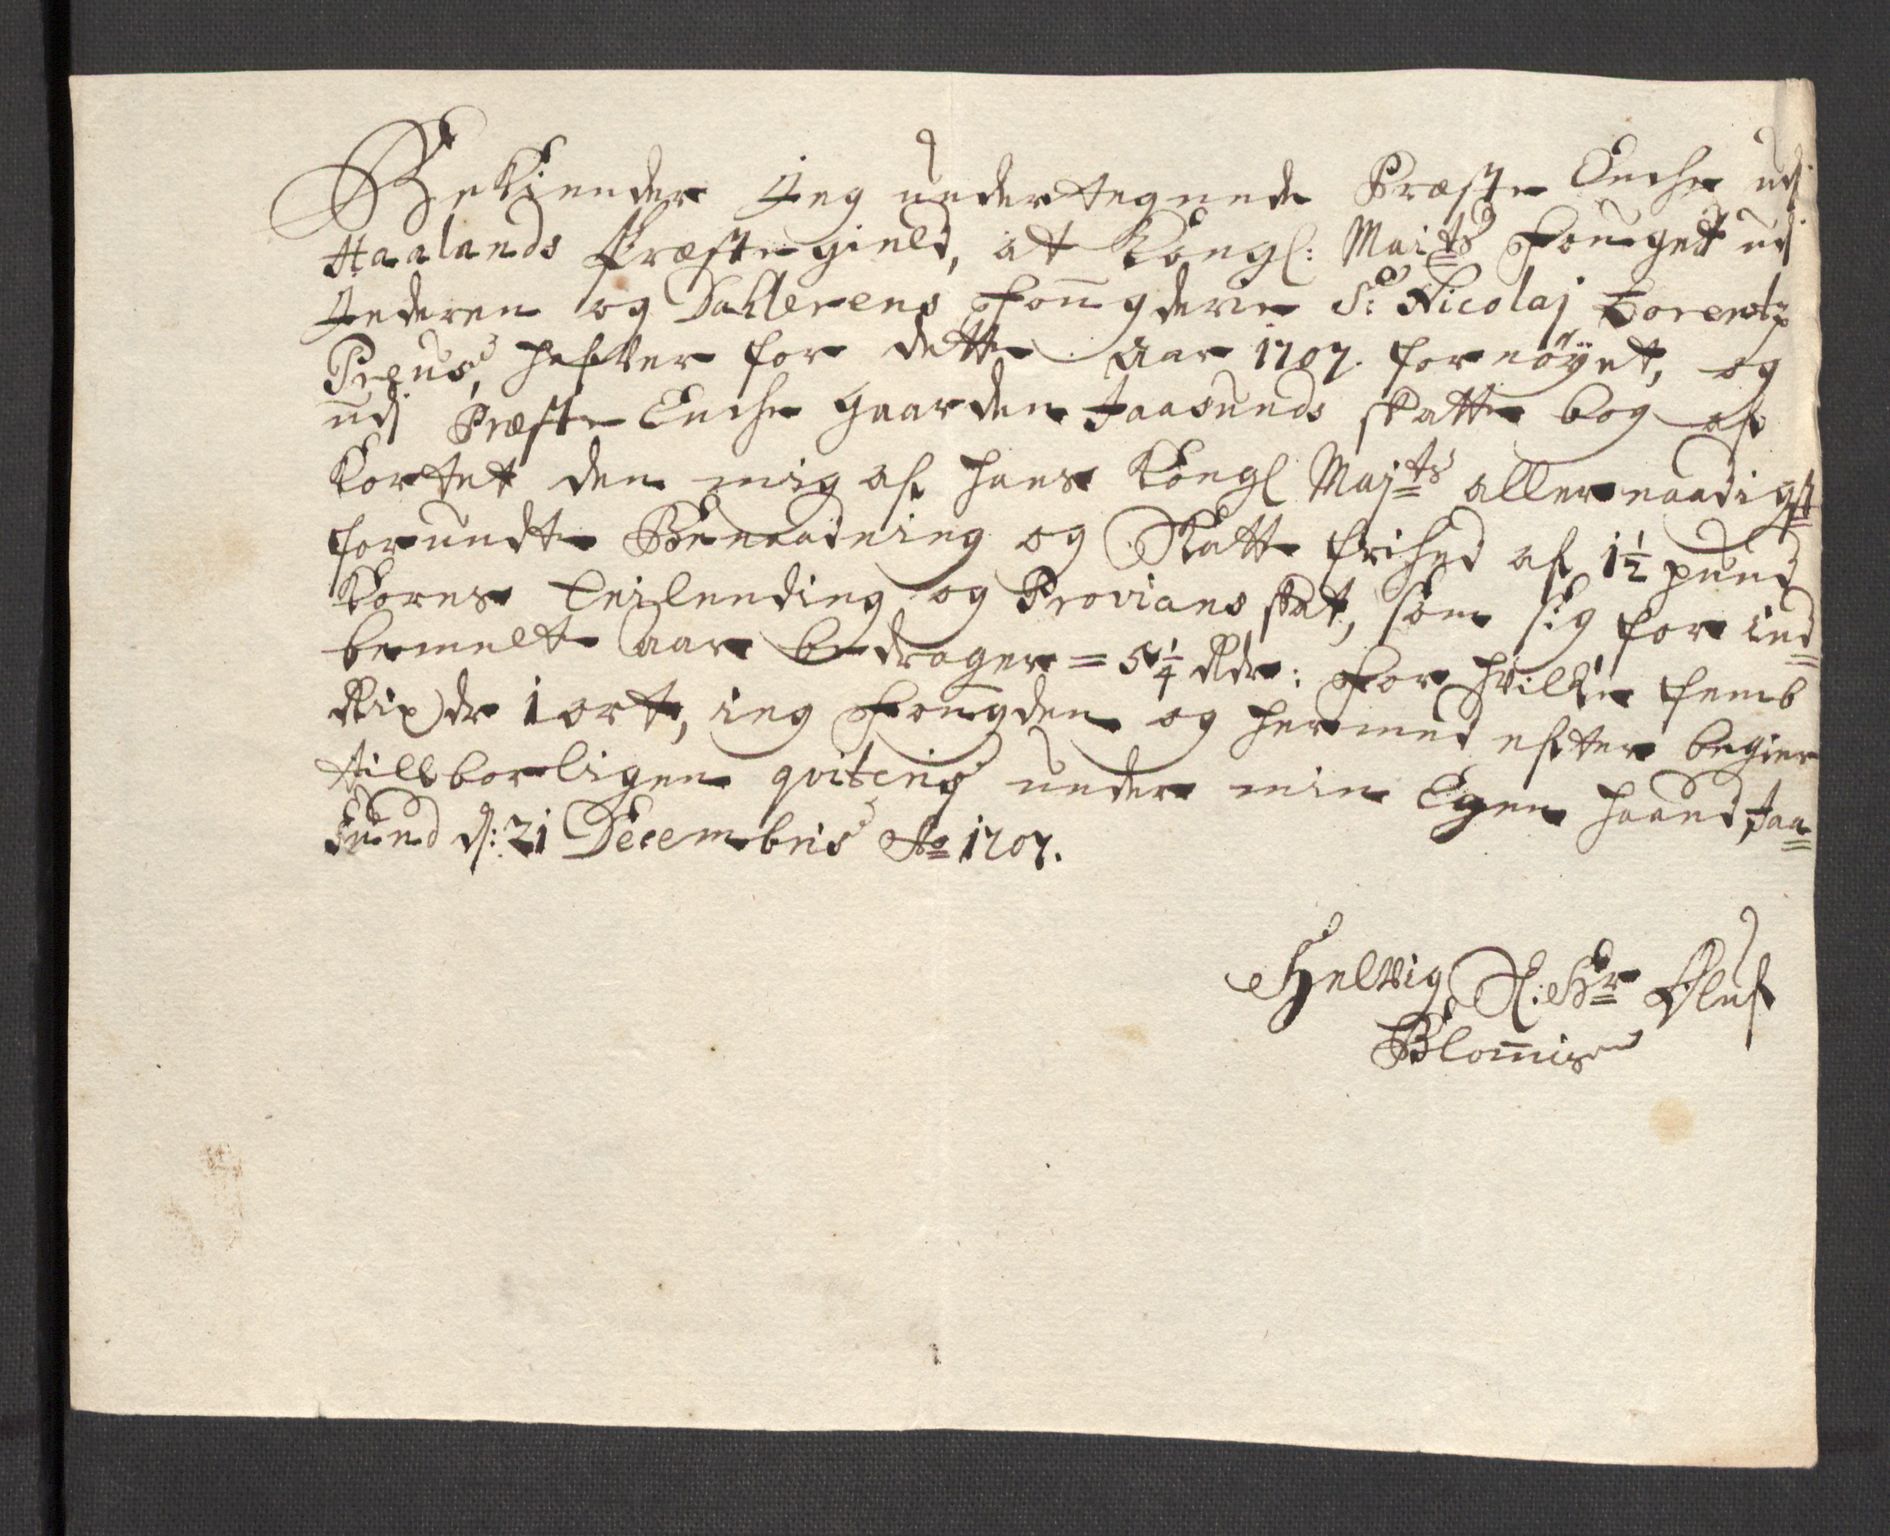 Bekiender Jeg undertegnede Præste Enche udj
Haalands Præstegield, at Kongl: Mai:ts Fouget udj
Jederen og Dahlerens Fougderie Sr: Nicolaj Lorentz
Preus, hafver for dette Aar 1707. fornöyet, og
udj Præste Enche gaarden Jaasunds skatte bog af
kortet den mig af hans Kongl Maj:ts allernaadigst
forundte Benaadning og Skatte frihed af 1½ pund
Korns Leilending og Provians skat, som sig for ind=
bemelte aar bedrager = 5¼ Rdr: For hvilke femb
Rixdr 1 ort, ieg Fougden og hermed efter begier
tillborligen qviteris under min Egen haand, Jaa=
sund d: 21 Decembris Ao 1707.
Helvig Sl: Hr Oluf
Blommis